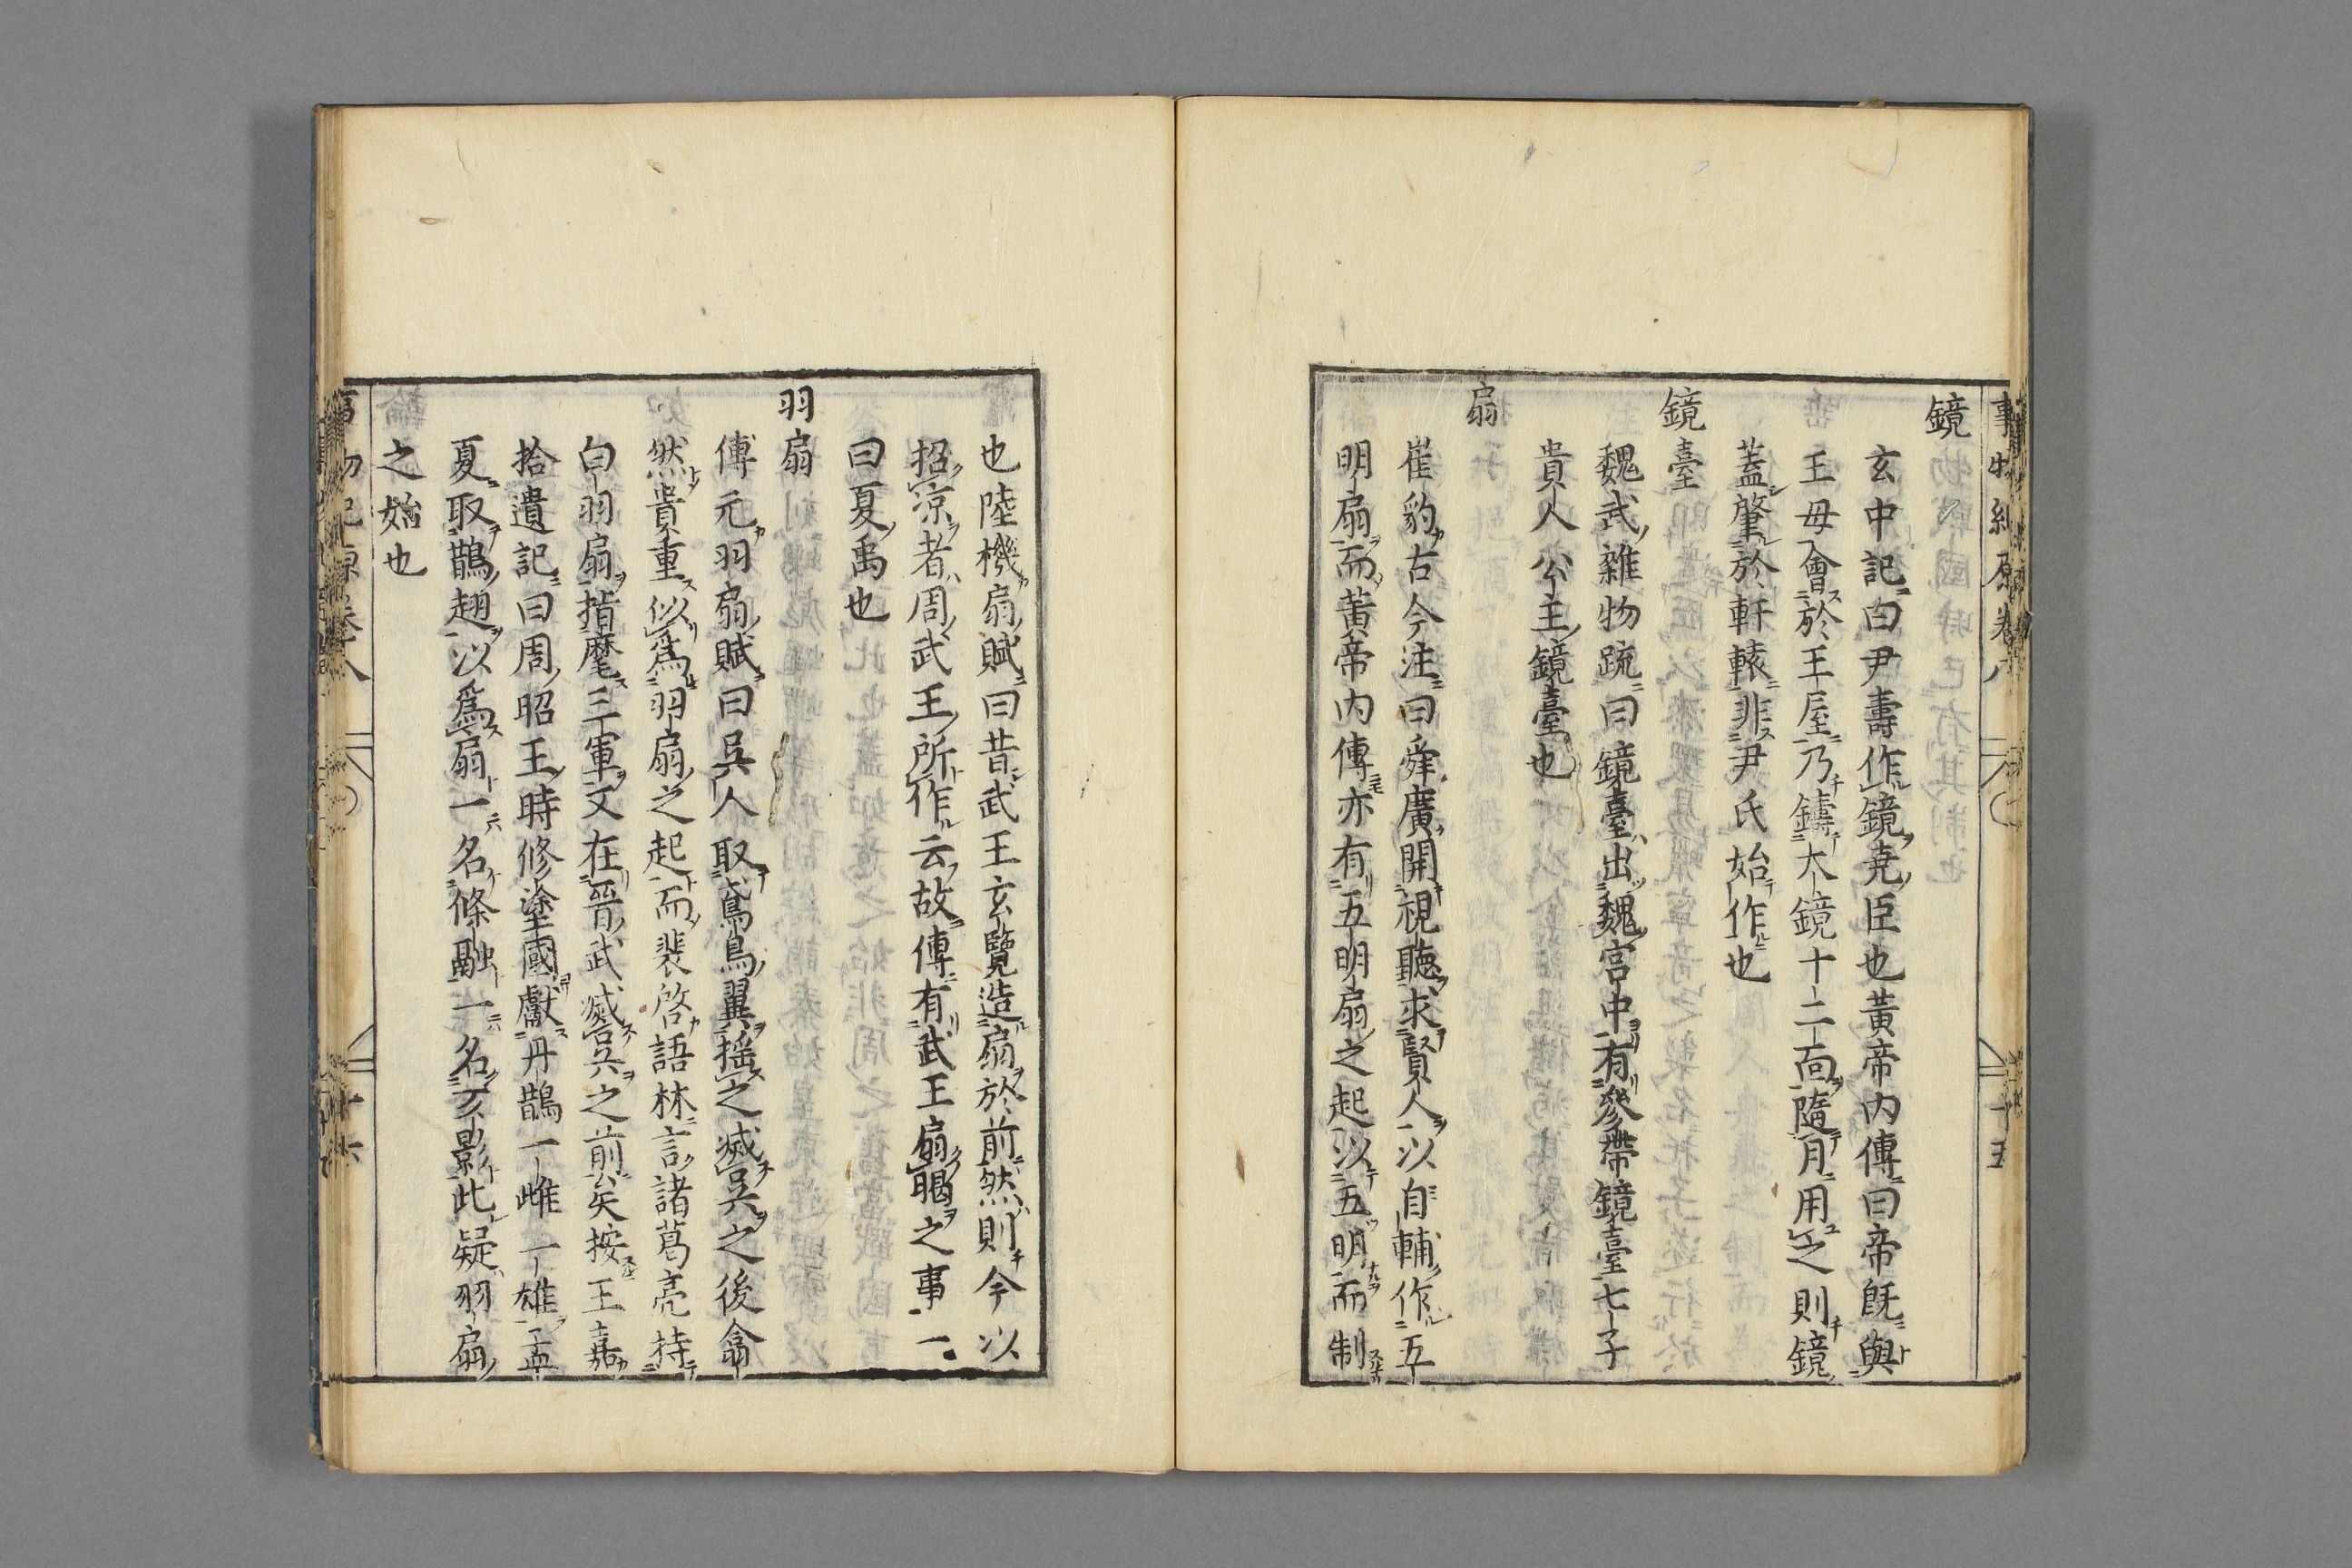 鏡
玄中記曰尹壽作鏡堯臣也黃帝内傳曰帝既與
王母會於王屋乃鑄大鏡十二面隨月用之則鏡
蓋肇於軒轅非尹氏始作也
鏡臺
魏武雜物疏曰鏡臺出魏宮中有參帶鏡臺七子
貴人公主鏡臺也
扇
崔豹古今注曰舜廣開視聽求賢人以自輔作五
明扇而黃帝内傳亦有五明扇之起以五明而制
也陸機扇賦曰昔武王玄覽造扇於前然則今以
招凉者周武王所作云故傳有武王扇暍之事一
曰夏禹也
羽扇
傅元羽扇賦曰吳人取鳶鳥翼搖之滅吳之後翕
然貴重似為羽扇之起而裴啓語林言諸葛亮持
白羽扇指麾三軍又在晉武滅吳之前矣按王嘉
拾遺記曰周昭王時修塗國獻丹鵲一雌一雄孟
夏取鵲翅以爲扇一名條融一名亥影此疑羽扇
之始也